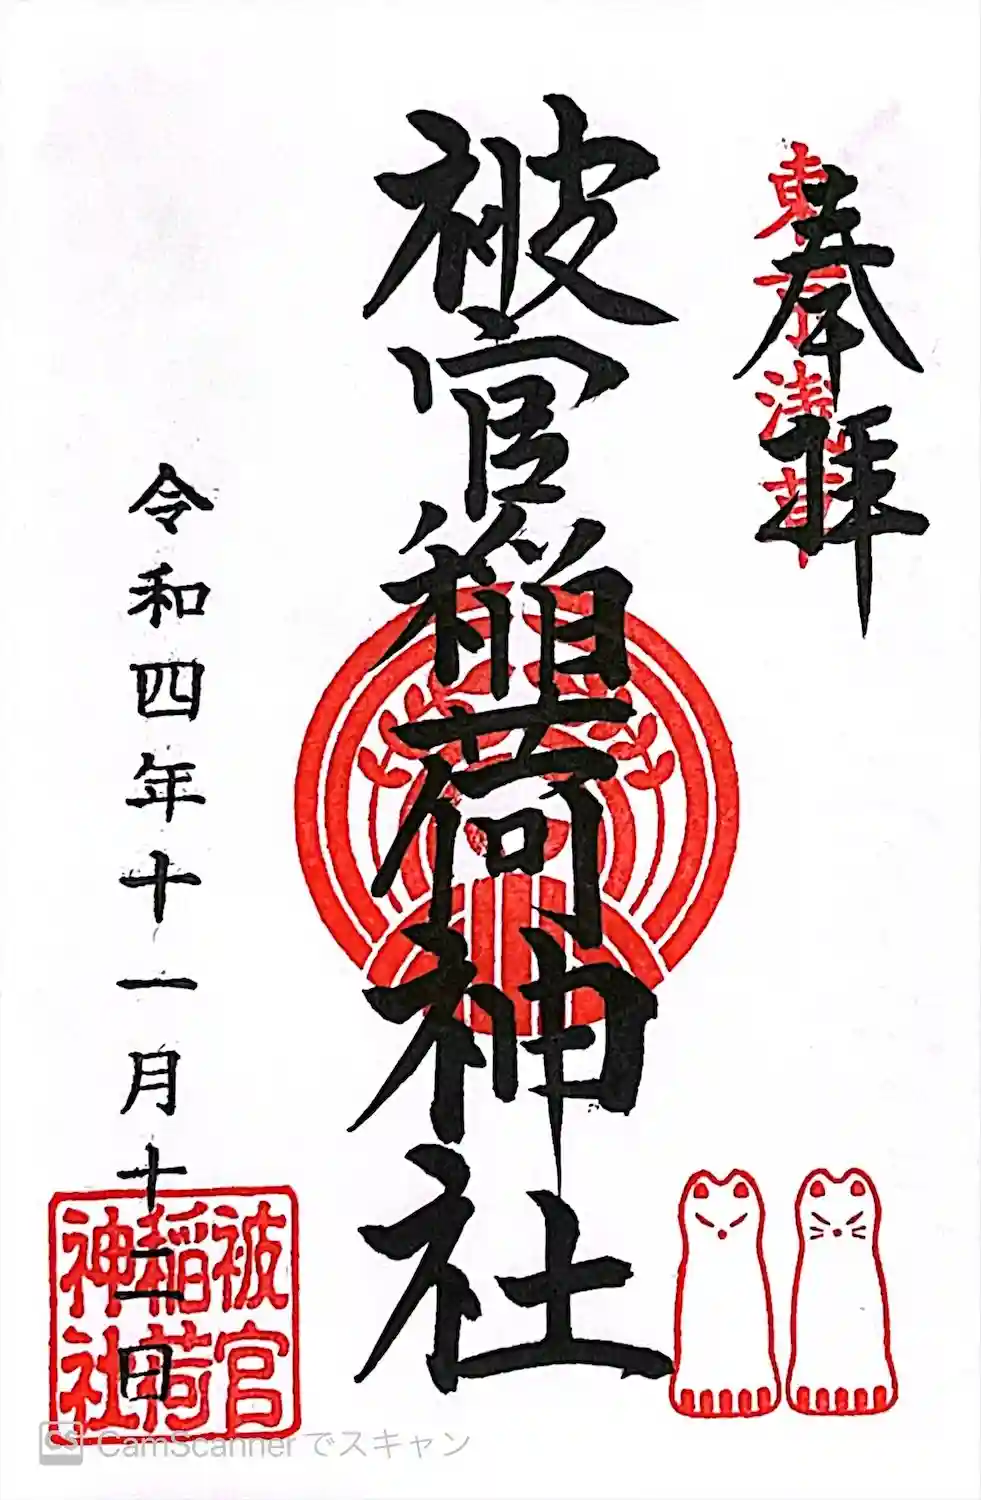 奉拝
東京浅草
被官稲荷神社
令和四年十一月十二日
被官
稲荷
神社
CS CamScanner でスキャン